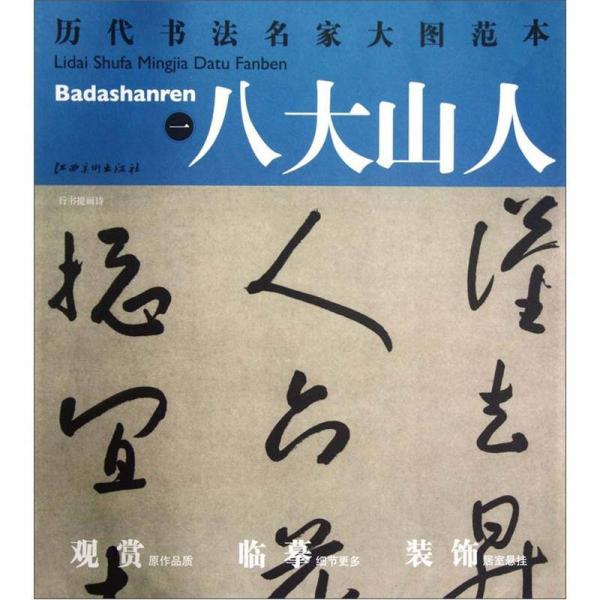 历代书法名家大图范本
Lidai Shufa Mingjia Datu Fanben
Badashanren
一
八大山人
江西美术出版社
行书提画诗
去昇
人
摠宜
观赏 原作品质
临摹 细节更多
装饰 居室悬挂